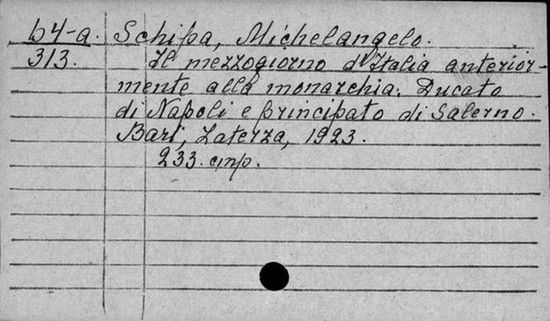 b4-a. Schipa, Michelangelo.
313. Il mezzogiorno d'Italia anterior-
mente alla monarchia. Ducato
di Napoli e principato di Salerno.
Bari, Laterza, 1923.
233.